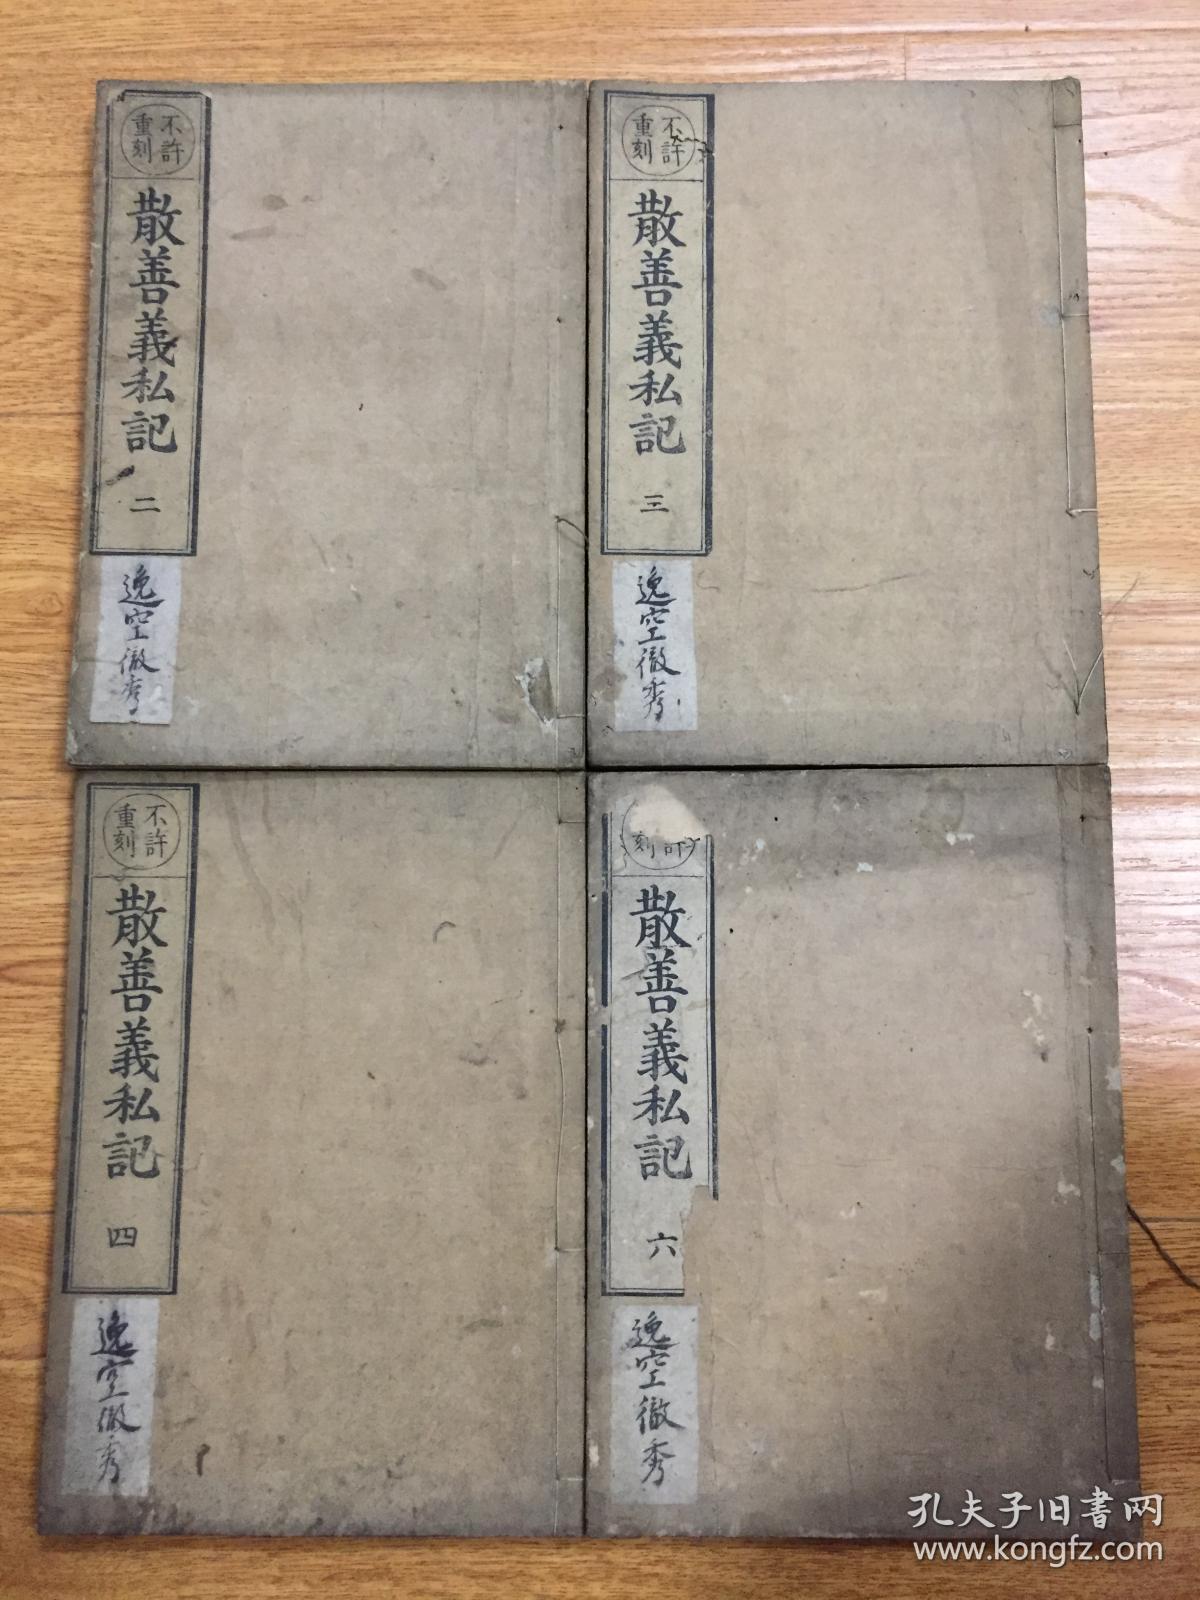 不許
重刻
散善義私記
二
逸空徹秀
不許
重刻
散善義私記
三
逸空徹秀
不許
重刻
散善義私記
四
逸空徹秀
許
刻
散善義私記
六
逸空徹秀
孔夫子旧書网
www.kongfz.com